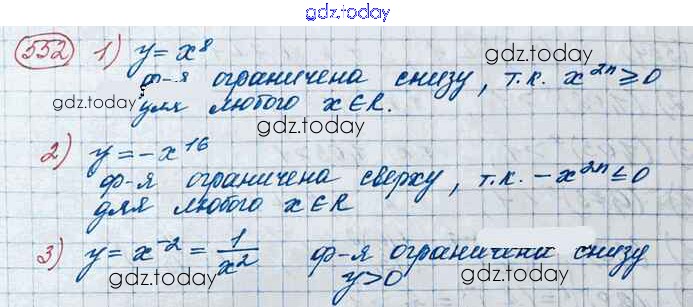 gdz.today
552 1) y = x⁸
ф-я ограничена снизу, т.к. x²ⁿ ≥ 0
для любого x ∈ R.
gdz.today
gdz.today
gdz.today
2) y = -x¹⁶
ф-я ограничена сверху, т.к. -x²ⁿ ≤ 0
для любого x ∈ R
gdz.today
3) y = x⁻² = 1/x² ф-я ограничена снизу
y > 0
gdz.today
gdz.today